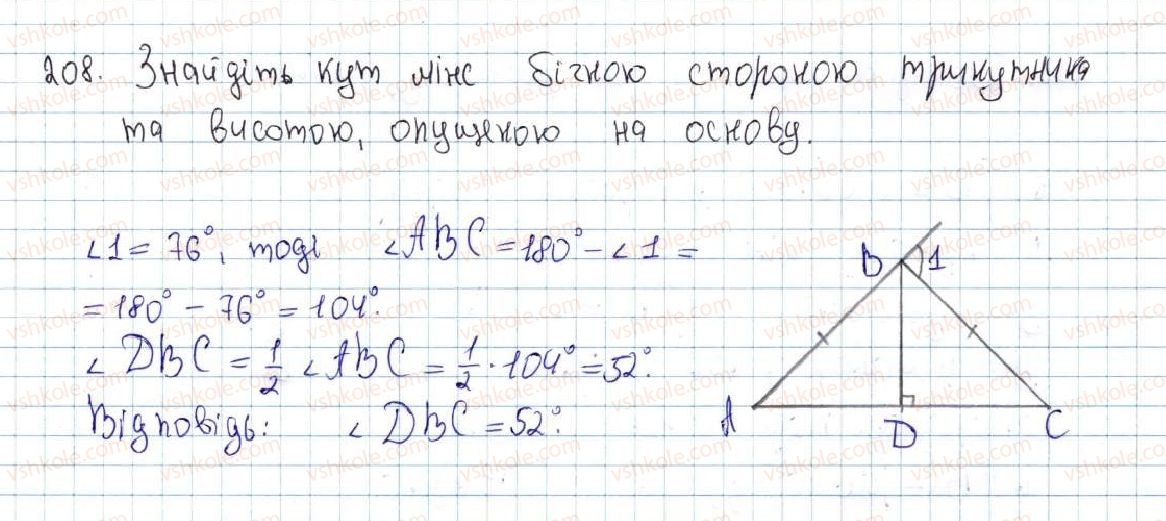 208. Знайдіть кут між бічною стороною трикутника
та висотою, опущеною на основу.
∠1 = 76°, тоді ∠ABC = 180° − ∠1 =
= 180° − 76° = 104°.
∠DBC = 1/2 ∠ABC = 1/2 · 104° = 52°.
Відповідь: ∠DBC = 52°.
B 1
A D C
vshkole.com